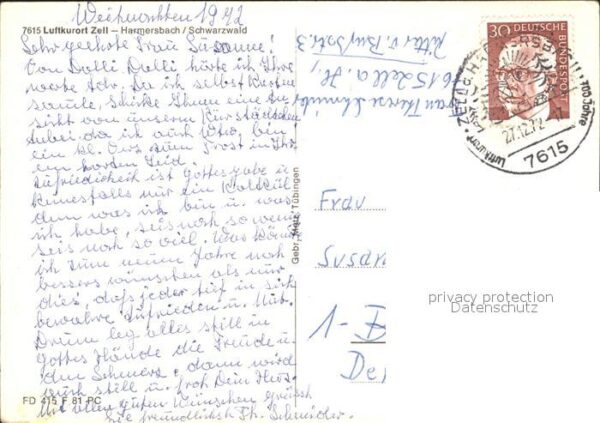 Weihnachten 1972
7615 Luftkurort Zell – Harmersbach / Schwarzwald
Sehr geehrte Frau Susanne!
Von Dalli, Dalli hörte ich Ihre
werte Adr. Da ich selbst Karten
sende, schicke Ihnen eine An
sicht von unserm Kurstädtchen
anbei. da ich auch Wtw. bin
ein kl. Vers zum Trost in Ihrem
harten Leid.
Zufriedenheit ist Gottesgabe u
keinesfalls nur ein Kalkül
denn was ich bin u. was
ich habe, seis noch so wenig
seis noch so viel. Was könnt
ich zum neuen Jahre noch
besseres wünschen als nur
dies, dass jeder tief in sich
bewahre Zufrieden u. Mut.
Drum leg alles still in
Gottes Hände die Freude u
den Schmerz, dann wird
auch still u. froh Dein Herz.
Mit allen guten Wünschen grüsst
Sie freundlichst Th. Schneider.
FD 415 F 81 PC
Gebr. Metz, Tübingen
Frau Therese Schneider
7615 Zell a. H.
Ritter v. Bußstr. 3
30
DEUTSCHE BUNDESPOST
ZELL a HARMERSBACH
Luftkurort
700 Jahre
27.12.72
7615
Frau
Susan
1-B
De
privacy protection
Datenschutz